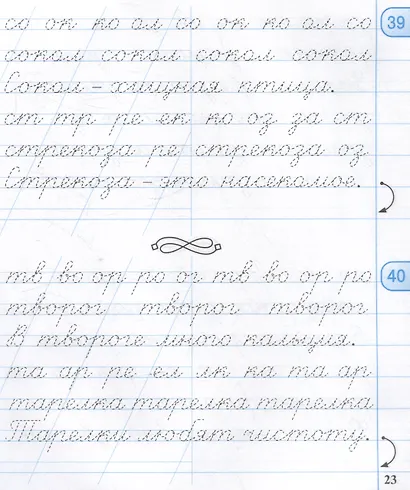 со ок ко ол со ок ко ол со
39
сокол сокол сокол сокол
Сокол – хищная птица.
ст тр ре ек ко оз за ст
стрекоза ре стрекоза оз
Стрекоза – это насекомое.
тв во ор ро ог тв во ор ро
40
творог творог творог
В твороге много кальция.
та ар ре ел лк ка та ар
тарелка тарелка тарелка
Тарелки любят чистоту.
23